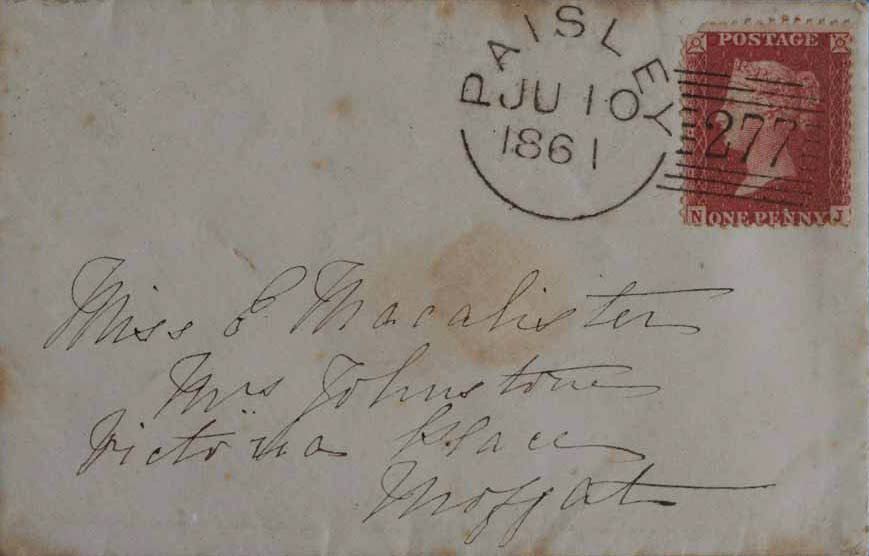 PAISLEY
JU 10
1861
POSTAGE
277
N ONE PENNY J
Miss E Macalister
Mrs Johnstone
Victoria Place
Moffat